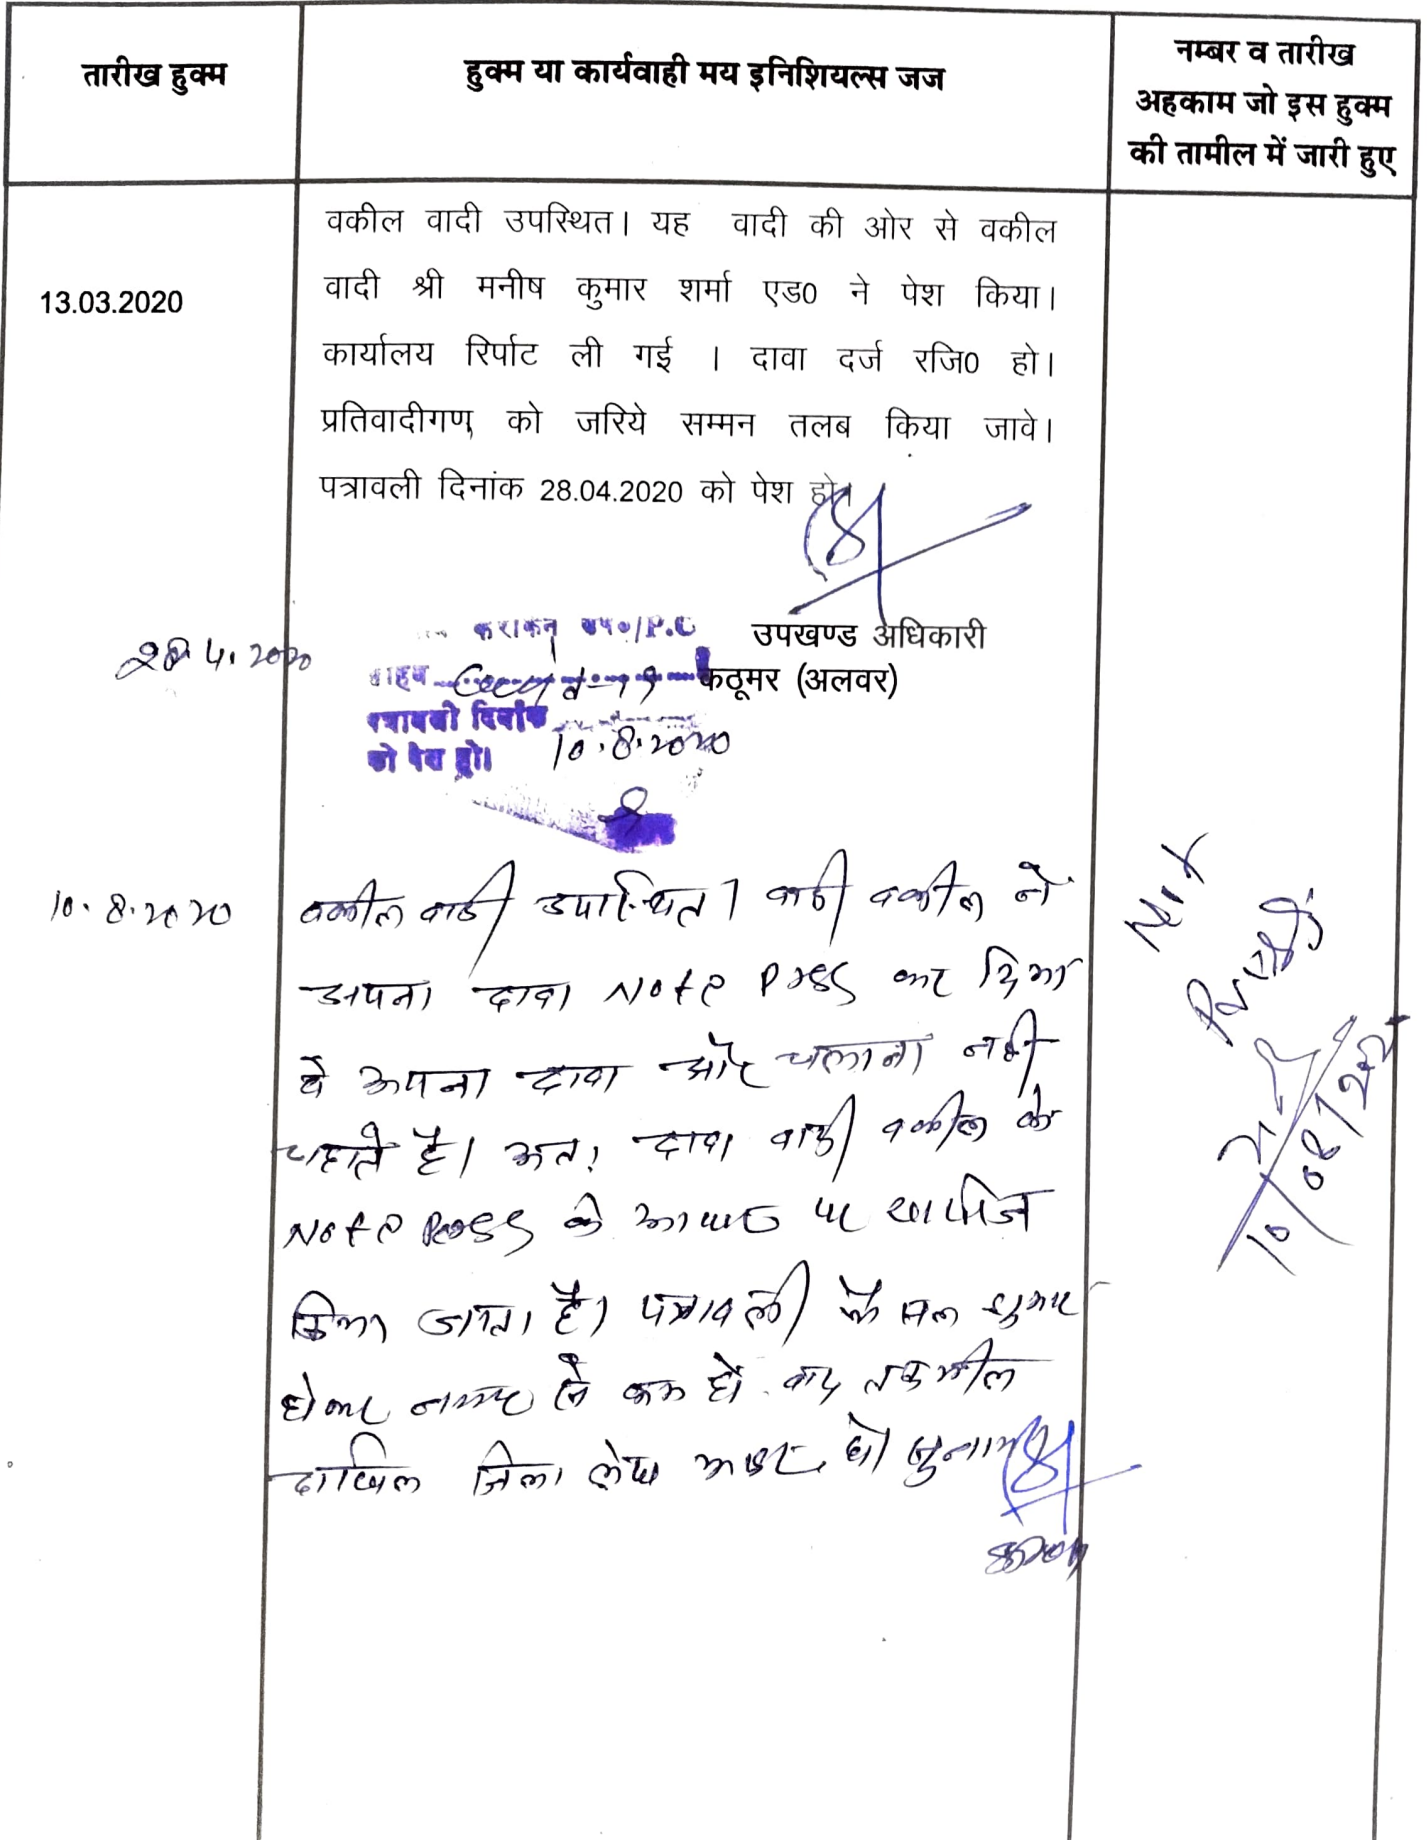 तारीख हुक्म
हुक्म या कार्यवाही मय इनिशियल्स जज
नम्बर व तारीख
अहकाम जो इस हुक्म
की तामील में जारी हुए
13.03.2020
वकील वादी उपस्थित। यह वादी की ओर से वकील
वादी श्री मनीष कुमार शर्मा एड0 ने पेश किया।
कार्यालय रिर्पाट ली गई । दावा दर्ज रजि0 हो।
प्रतिवादीगण को जरिये सम्मन तलब किया जावे।
पत्रावली दिनांक 28.04.2020 को पेश हो।
उपखण्ड अधिकारी
कठूमर (अलवर)
28.4.2020
पत्रावली दिनांक
10.8.2020
को पेश हो।
10.8.2020
वकील वादी उपस्थित। वादी वकील ने
अपना दावा Note Press कर दिया
वे अपना दावा और चलाना नही
चहाते है। अतः दावा वादी वकील के
Note Press के आधार पर खारिज
किया जाता है। पत्रावली फैसल शुमार
होकर नम्बर से कम हो वाद तकमील
दाखिल जिला लेख
Not
10/08/2020